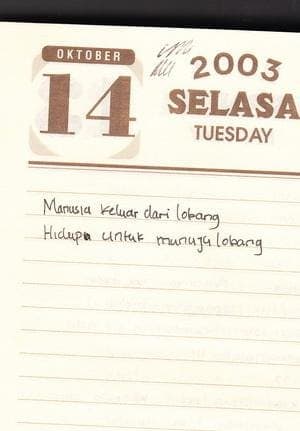 OKTOBER
14
2003
SELASA
TUESDAY
Manusia keluar dari lobang
Hidupn untuk munuju lobang